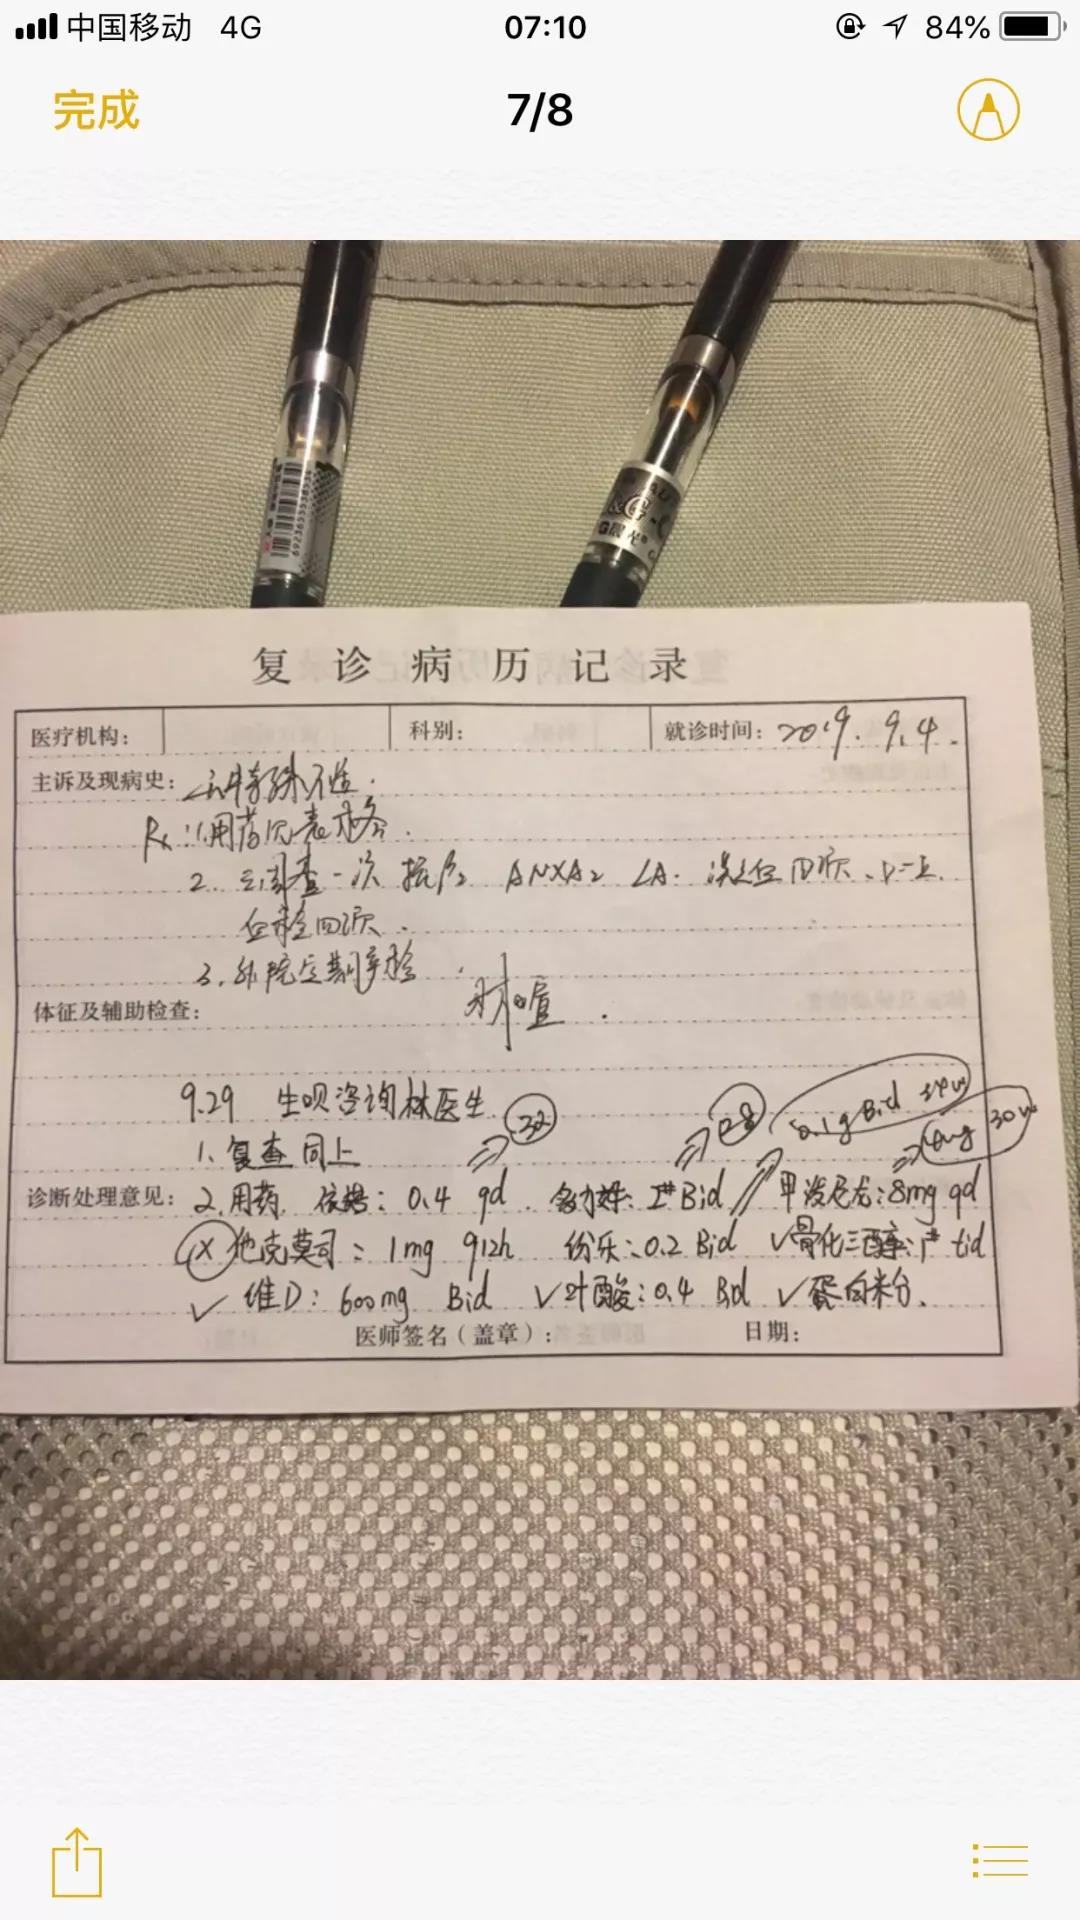 中国移动 4G 07:10 84%
完成 7/8
6923655538554
G晨光®
复诊病历记录
医疗机构: 科别: 就诊时间: 2019.9.4.
主诉及现病史: 无特殊不适.
Rx: 1.用药见表格.
2. 查一次 ANXA2 LA. 凝血四项、D-二
四项.
3. 外院定期产检.
体征及辅助检查:
9.29 生呗咨询林医生
1. 复查同上 32 28 0.1g Bid 30w
诊断处理意见: 2. 用药. 0.4 qd. Bid 甲泼尼龙: 8mg qd
X 他克莫司: 1mg q12h 纷乐: 0.2 Bid ✓骨化三醇: 1# tid
✓ 维D: 600mg Bid ✓叶酸: 0.4 Bid ✓蛋白粉.
医师签名(盖章): 日期: